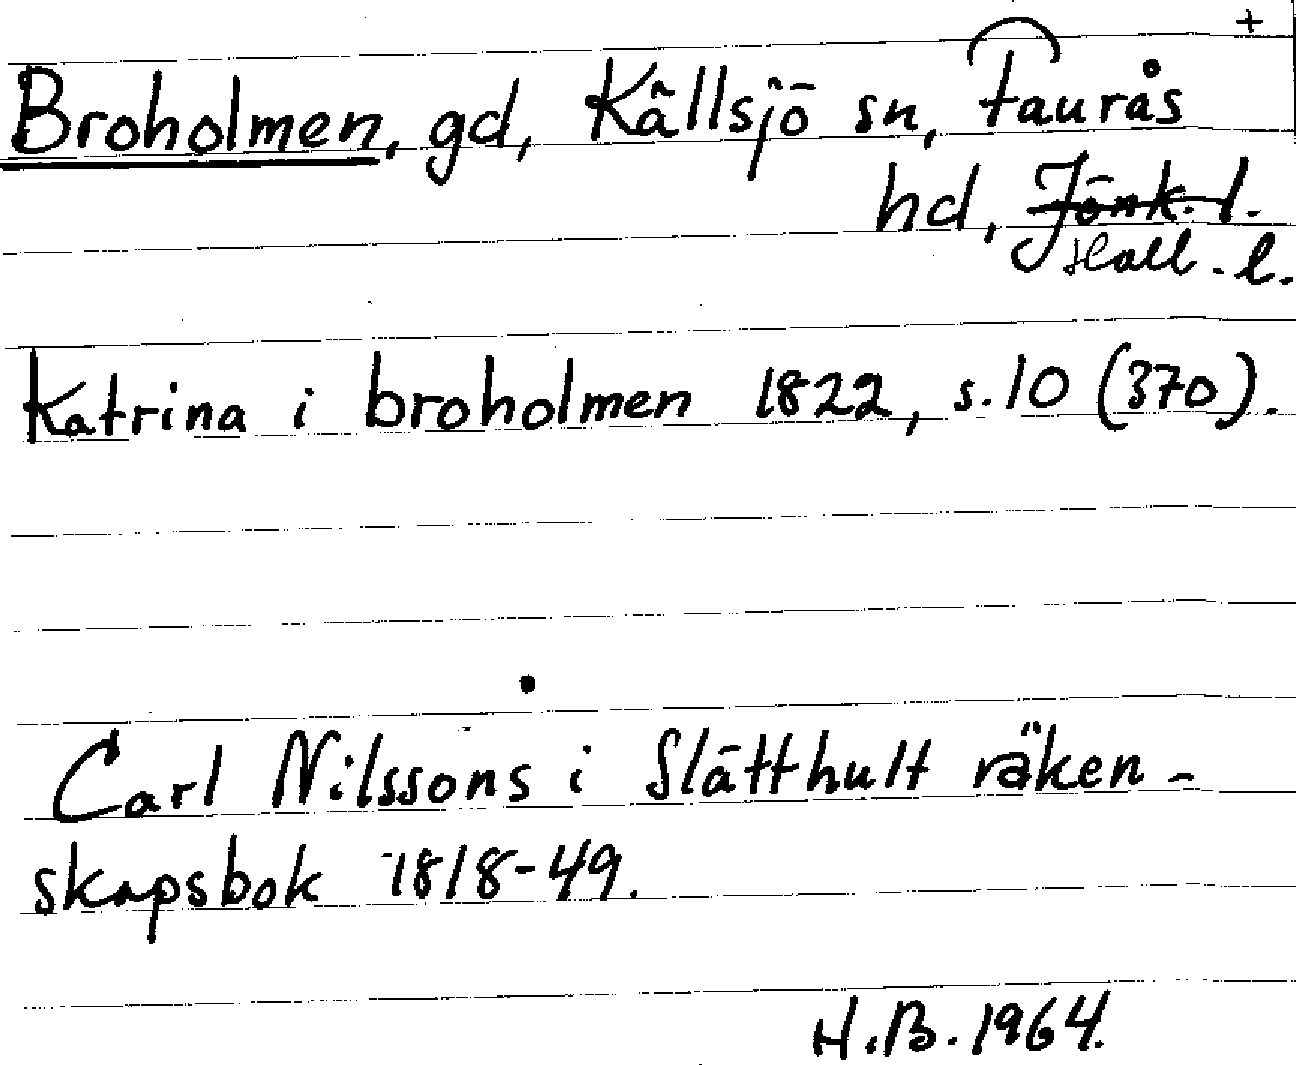 +
Broholmen, gd, Källsjö sn, Faurås
hd, Jönk. l.
Hall. l.
Katrina i broholmen 1822, s. 10 (370).
Carl Nilssons i Slätthult räken-
skapsbok 1818-49.
H.B. 1964.